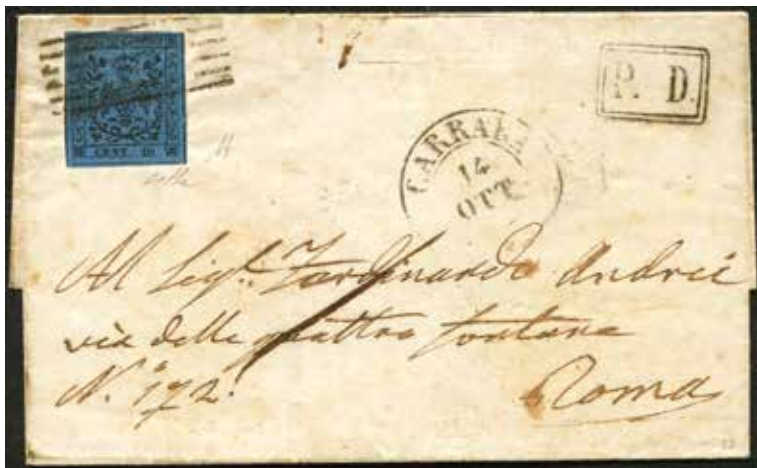 CENT. 40
P. D.
CARRARA
14
OTT
Al Sig.r Ferdinando Andrei
via delle quattro fontane
N.° 172.
Roma